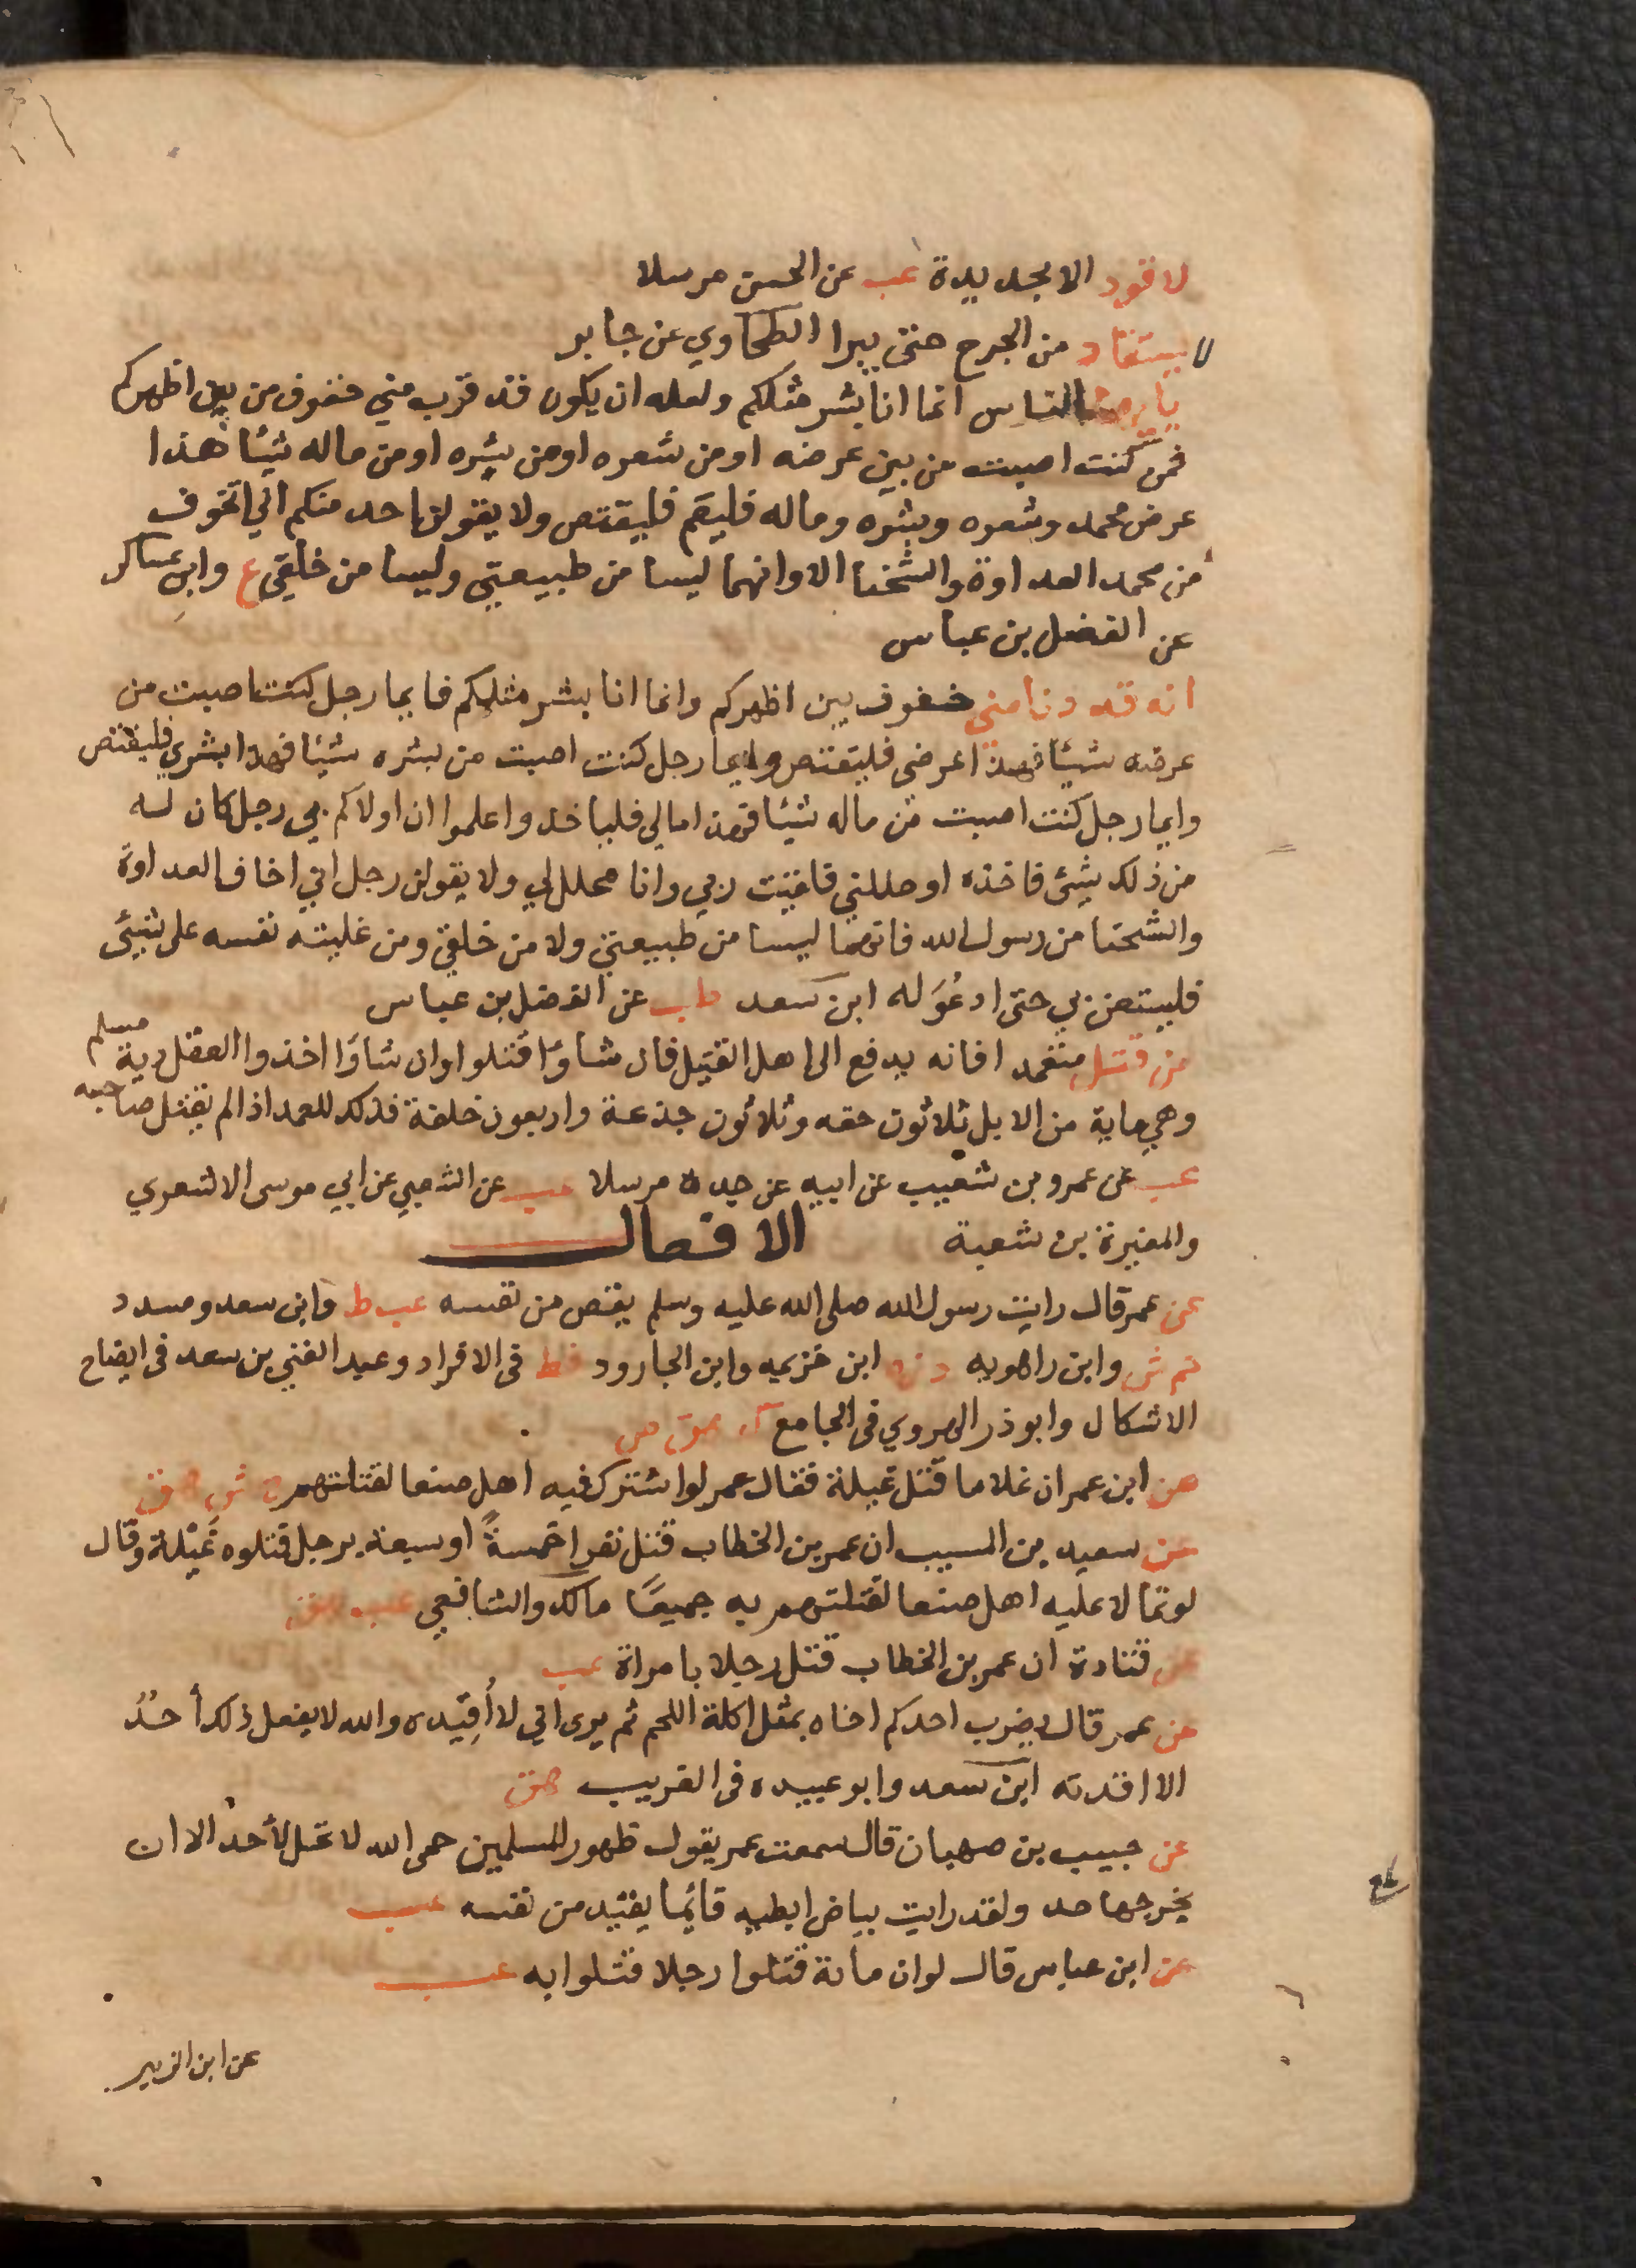 لا قود الا بحديدة عب عن الحسن مرسلا
لا يستقاد من الجرح حتى يبرا الطحاوي عن جابر
يا ايها الناس انما انا بشر مثلكم ولعله ان يكون قد قرب مني خفوف من بين اظهركم
فمن كنت اصبت من بين عرضه او من شعره او من بشره او من ماله شيئا هذا
عرض محمد وشعره وبشره وماله فليقم فليقتص ولا يقولن احد منكم اني اتخوف
من محمد العداوة والشحنا الا وانهما ليسا من طبيعتي وليسا من خلقي ع وابن عساكر
عن الفضل بن عباس
انه قد دنا مني خفوف بين اظهركم وانما انا بشر مثلكم فايما رجل كنت اصبت من
عرضه شيئا فهذا عرضي فليقتص وايما رجل كنت اصبت من بشره شيئا فهذا بشري فليقتص
وايما رجل كنت اصبت من ماله شيئا فهذا مالي فلياخذ واعلموا ان اولاكم بي رجل كان له
من ذلك شيئ فاخذه او حللني فلقيت ربي وانا محلل لي ولا يقولن رجل اني اخاف العداوة
والشحنا من رسول الله فانهما ليسا من طبيعتي ولا من خلقي ومن غلبته نفسه على شيئ
فليستعن بي حتى ادعُوَ له ابن سعد طب عن الفضل بن عباس
من قتل متعمدا فانه يدفع الى اهل القتيل فان شاؤا قتلوا وان شاؤا اخذوا العقل دية مسلم
وهي ماية من الابل ثلاثون حقه وثلاثون جذعة واربعون خلفة فذلك للعمد اذا لم يقتل صاحبه
عب عن عمرو بن شعيب عن ابيه عن جده مرسلا عب عن الشعبي عن ابي موسى الاشعري
والمغيرة بن شعبة
الافعال
عن عمر قال رايت رسول الله صلى الله عليه وسلم يقتص من نفسه عب ط وابن سعد ومسدد
حم ش وابن راهويه د ن ابن خزيمه وابن الجارود قط في الافراد وعبد الغني بن سعد في ايضاح
الاشكال وابو ذر الهروي في الجامع ك هق ص
عن ابن عمر ان غلاما قتل غيلة فقال عمر لو اشترك فيه اهل صنعا لقتلتهم خ ش هق
عن سعيد بن المسيب ان عمر بن الخطاب قتل نفرا خمسةً او سبعة برجل قتلوه غَيْلة وقال
لو تمالا عليه اهل صنعا لقتلتهم به جميعًا مالك والشافعي عب هق
عن قتادة ان عمر بن الخطاب قتل رجلا بامراة عب
عن عمر قال يضرب احدكم اخاه بمثل اكلة اللحم ثم يرى اني لا أُقِيده والله لا يفعل ذلك أحدٌ
الا اقدته ابن سعد وابو عبيده في الغريب هق
عن حبيب بن صهبان قال سمعت عمر يقول ظهور المسلمين حمى الله لا تحل لأحد الا ان
يخرجها حد ولقد رايت بياض ابطيه قائما يقيد من نفسه عب
عن ابن عباس قال لو ان مائة قتلوا رجلا قتلوا به عب
عن ابن الزبير